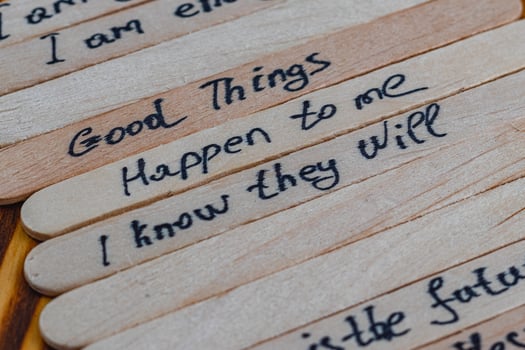 I am
I am
Good Things
Happen to me
I know they will
is the